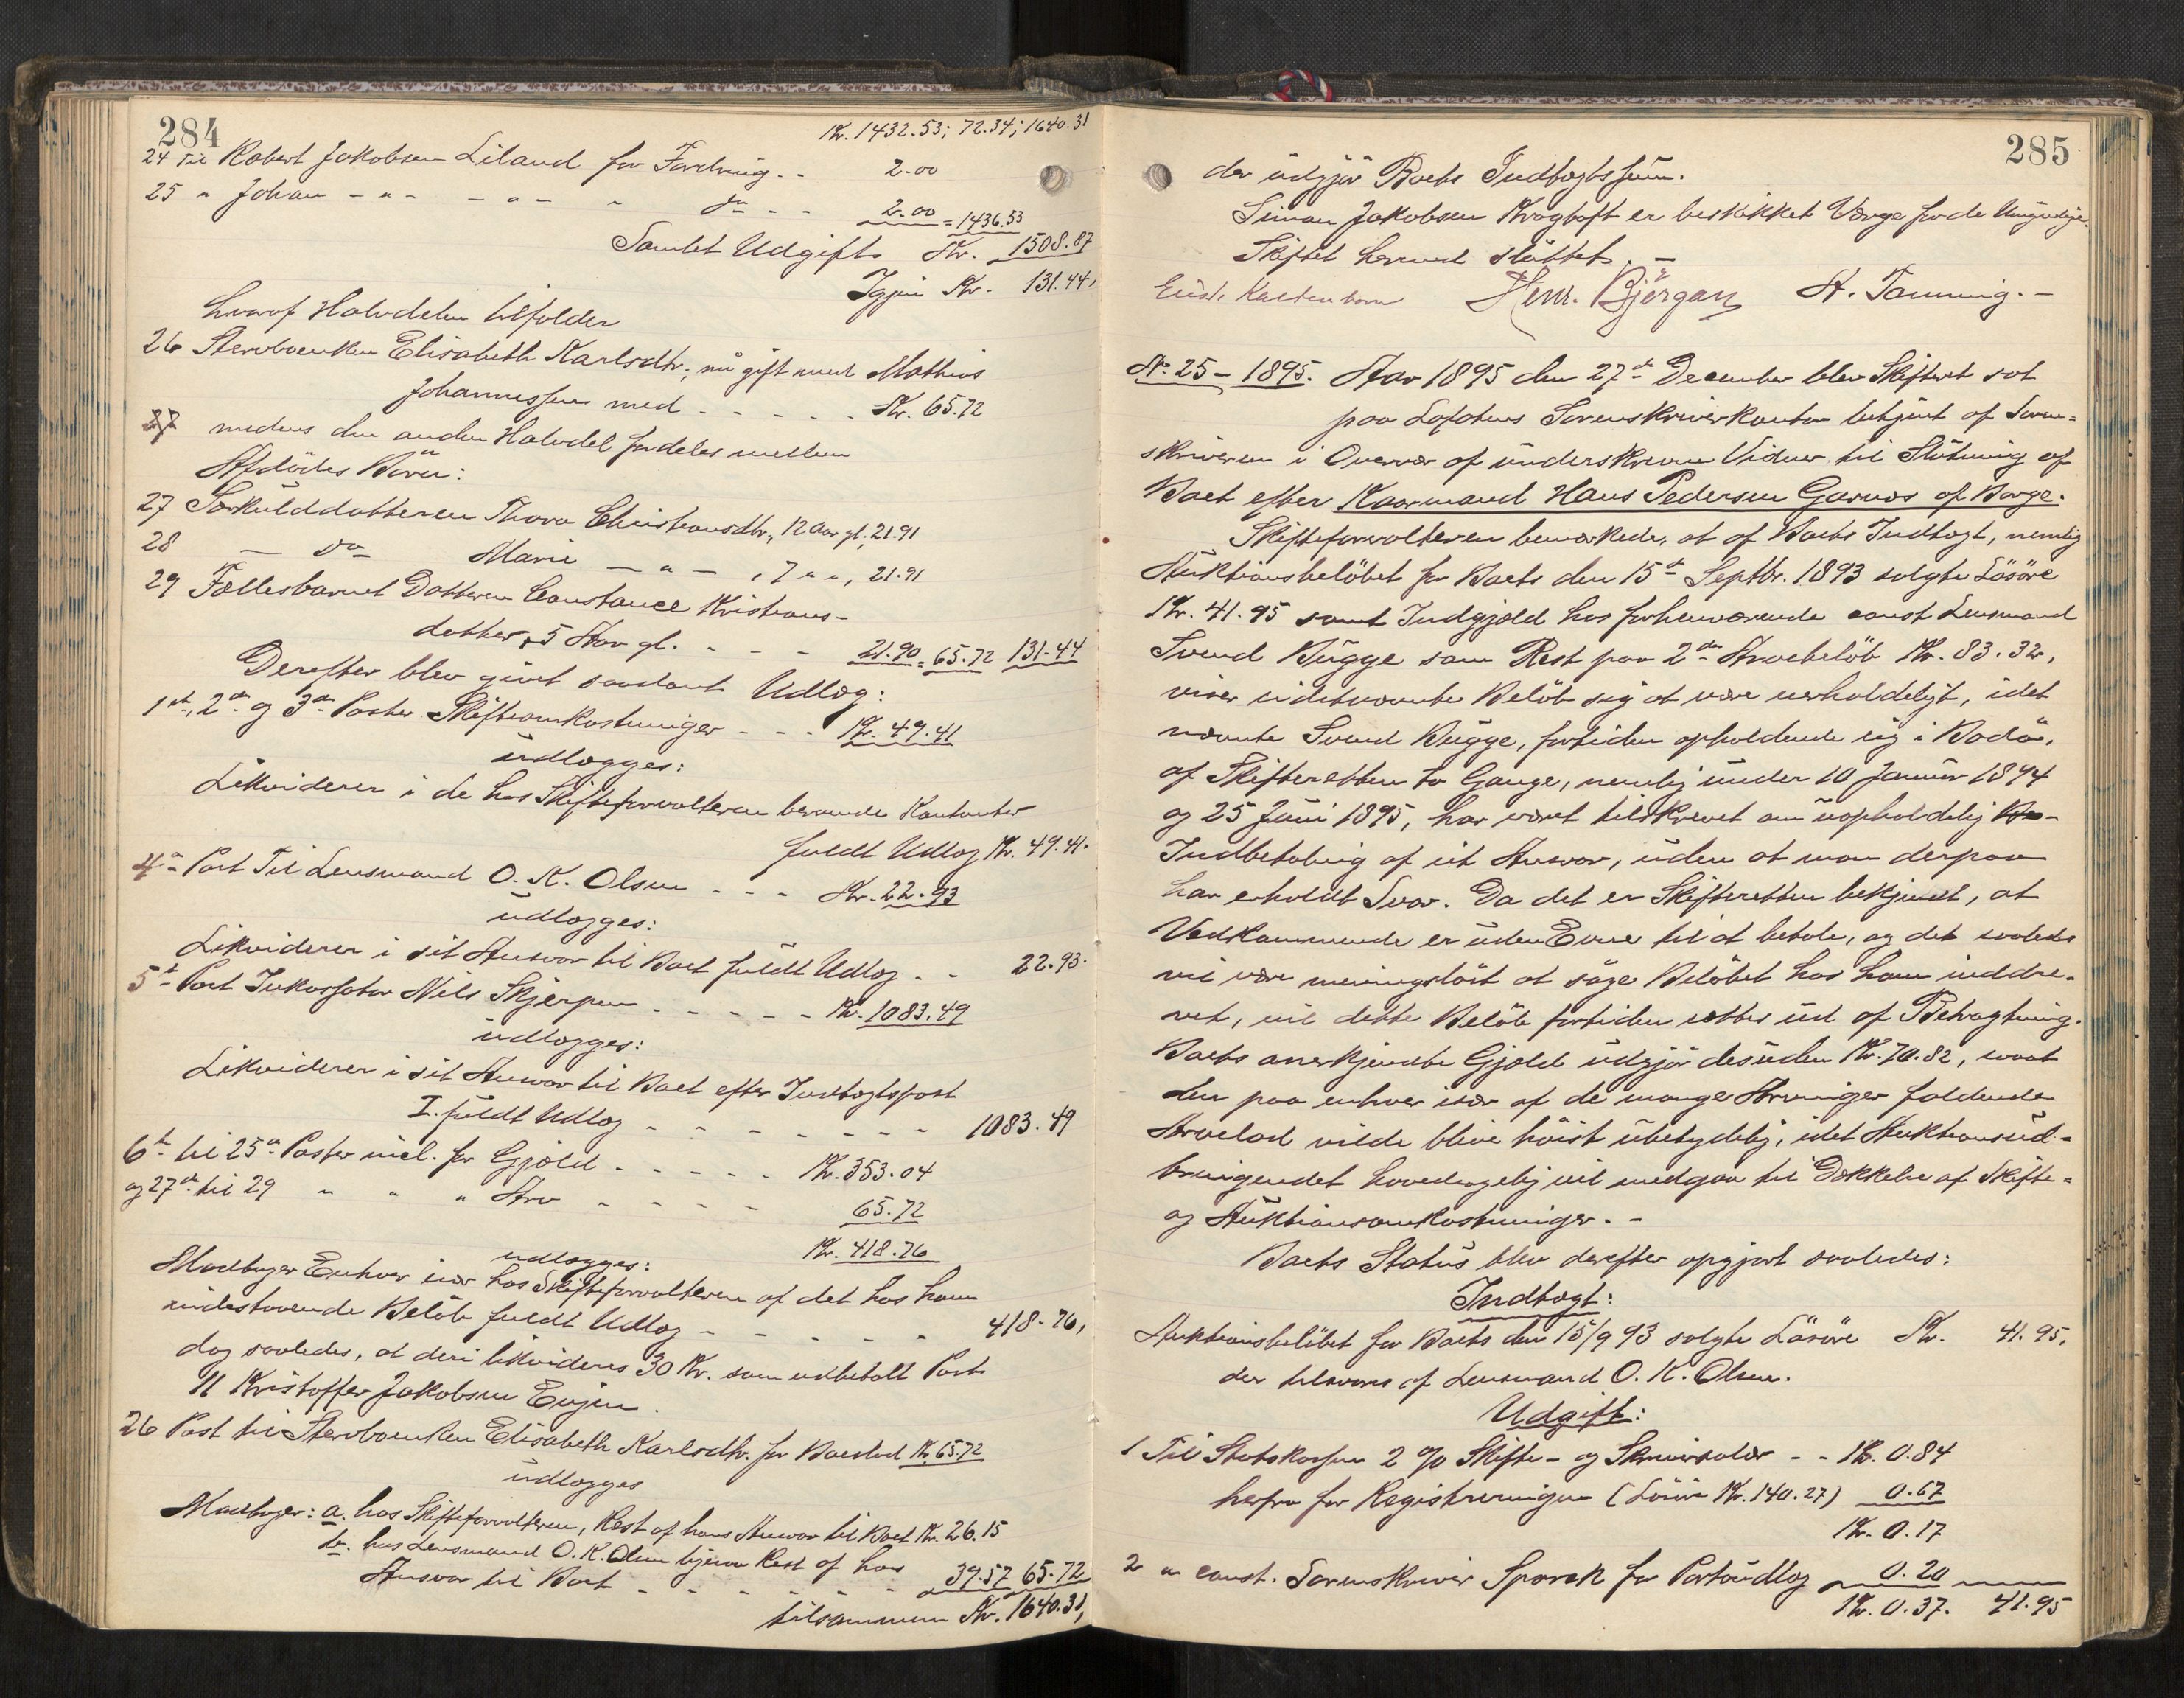 284
Kr. 1432.53; 72.34; 1640.31
24 Til Robert Jakobsen Liland for Fordring - - 2.00
25 " Johan - " - - " - " do - - 2.00 = 1436.53
Samlet Udgift Kr. 1508.87
Igjen Kr. 131.44,
hvoraf Halvdelen tilfalder
26 Stervboenken Elisabeth Karlsdtr., nu gift med Mathias
Johannessen med - - - - - Kr. 65.72
medens den anden Halvdel fordeles mellem
Afdødes Börn:
27 Særkulddatteren Thora Christiansdtr., 12 Aar gl., 21.91
28 — do Marie — " — , 7 " " , 21.91
29 Fællesbarnet Datteren Constance Kristians-
datter, 5 Aar gl. - - - 21.90 = 65.72 131.44
Derefter blev givet saadant Udlæg:
1ste, 2den og 3die Poster Skifteomkostninger - - - Kr. 49.41
udlægges:
Likviderer i de hos Skifteforvalteren beroende Kontanter
fuldt Udlæg Kr. 49.41.
4de Post Til Lensmand O. K. Olsen - - - Kr. 22.93
udlægges:
Likviderer i sit Ansvar til Boet fuldt Udlæg - - 22.93.
5te Post Inkassator Nils Skjerpen - - - - - Kr. 1083.49
udlægges:
Likviderer i sit Ansvar til Boet efter Indtægtspost
I. fuldt Udlæg - - - - - - - - 1083.49
6te til 25de Poster incl. for Gjæld - - - - - Kr. 353.04
og 27de til 29 " " " Arv - - - - - 65.72
Kr. 418.76
udlægges:
Modtager Enhver især hos Skifteforvalteren af det hos ham
indestaaende Beløb fuldt Udlæg - - - - - 418.76,
dog saaledes, at deri likvideres 30 Kr. som udbetalt Post
11 Kristoffer Jakobsen Evjen.
26 Post til Stervboenken Elisabeth Karlsdtr. for Boeslod Kr. 65.72
udlægges
Modtager: a. hos Skifteforvalteren, Rest af hans Ansvar til Boet Kr. 26.15
b. hos Lensmand O. K. Olsen ligesaa Rest af hans
Ansvar til Boet - - - - - - 39.57 65.72
tilsammen Kr. 1640.31,
285
der udgjør Boets Indtægtssum.
Simon Jakobsen Kragtoft er beskikket Værge for de Umyndige.
Skiftet hermed sluttet. —
Henr. Björgan A. Tonning. —
No 25 - 1895. Aar 1895 den 27de December blev Skifteret sat
paa Lofotens Sorenskriverkontor betjent af Soren-
skriveren i Overvær af underskrevne Vidner til Slutning af
Boet efter Kaarmand Hans Pedersen Garnæs af Borge.
Skifteforvalteren bemærkede, at af Boets Indtægt, nemlig
Auktionsbeløbet for Boets den 15de Septbr. 1893 solgte Løsøre
Kr. 41.95 samt Indgjæld hos forhenværende const Lensmand
Svend Bugge som Rest paa 2den Arvebeløb Kr. 83.32,
viser sidstnævnte Beløb sig at være uerholdeligt, idet
nævnte Svend Bugge, fortiden opholdende sig i Bodø,
af Skifteretten to Gange, nemlig under 10 Januar 1894
og 25 Juni 1895, har været tilskrevet om uopholdelig
Indbetaling af sit Ansvar, uden at man derpaa
har erholdt Svar. Da det er Skifteretten bekjendt, at
Vedkommende er uden Evne til at betale, og det saaledes
vil være meningsløst at søge Beløbet hos ham inddre-
vet, vil dette Beløb fortiden sættes ud af Betragtning.
Boets anerkjendte Gjæld udgjør desuden Kr. 70.82, saaat
den paa enhver især af de mange Arvinger faldende
Arvelod vilde blive høist ubetydelig, idet Auktionsud-
bringendet hovedsagelig vil medgaa til Dækkelse af Skifte-
og Auktionsomkostninger. -
Boets Status blev derefter opgjort saaledes:
Indtægt:
Auktionsbeløbet for Boets den 15/9 93 solgte Løsøre Kr. 41.95,
der tilsvares af Lensmand O. K. Olsen.
Udgift:
1 Til Statskassen 2 % Skifte- og Skriversalær - - Kr. 0.84
herfra for Registreringen (Løsøre Kr. 140.27) 0.67
Kr. 0.17
2 " const. Sorenskriver Sparck for Portoudlæg 0.20
Kr. 0.37. 41.95